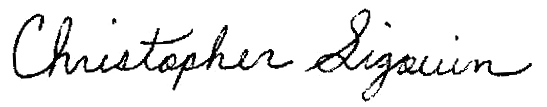 Christopher Sigouin